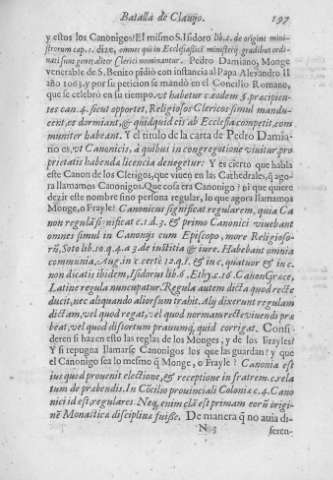 Batalla de Clauijo. 197
y estos los Canonigos? El mismo S. Isidoro lib. 2. de origine mini-
strorum cap. 1. dize, omnes qui in Ecclesiastici ministerij gradibus ordi-
nati sunt generaliter Clerici nominantur. Pedro Damiano, Monge
venerable de S. Benito pidiò con instancia al Papa Alexandro II
año 1063. y por su peticion se mandò en el Concilio Romano,
que se celebrò en su tiempo, vt habetur eodem §. præcipien-
tes can. 4. sicut oportet, Religiosos Clericos simul mandu-
cent, et dormiant, & quidquid eis ab Ecclesia competit, com
muniter habeant. Y el titulo de la carta de Pedro Damia-
no es, vt Canonicis, à quibus in congregatione viuitur, pro
prietatis habenda licencia denegetur: Y es cierto que habla
este Canon de los Clerigos, que viuen en las Cathedrales, q̃ ago-
ra llamamos Canonigos. Que cosa era Canonigo? ni que quiere
dezir este nombre sino persona regular, lo que agora llamamos
Monge, o Frayle? Canonicus significat regularem, quia Ca
non regulã significat c. 1. d. 3. & primo Canonici viuebant
omnes simul in Canonijs cum Episcopo, more Religioso-
rũ, Soto lib. 10. q. 4. a 3. de iustitia & iure. Habebant omnia
communia, Aug. in c certè 12. q. 1. & in c. quatuor & in c.
non dicatis ibidem, Isidorus lib. 6. Ethy. c. 16. Canon Græce,
Latine regula nuncupatur. Regula autem dicta quod recte
ducit, nec aliquando aliorsum trahit. Alij dixerunt regulam
dictam, vel quod regat, vel quod normam recte viuendi præ
beat, vel quod distortum prauumq́; quid corrigat. Consi-
deren si hazen esto las reglas de los Monges, y de los Frayles?
Y si repugna llamarse Canonigos los que las guardan? y que
el Canonigo sea lo mesmo q̃ Monge, o Frayle? Canonia est
ius quod prouenit electione, & receptione in fratrem. c. rela
tum de præbendis. In Cõcilio prouinciali Colonia c. 4. Cano
nici id est, regulares. Neq. enim clã est primam eorũ origi-
nẽ Monastica disciplina fuisse. De manera q̃ no auia di-
N 3 feren-